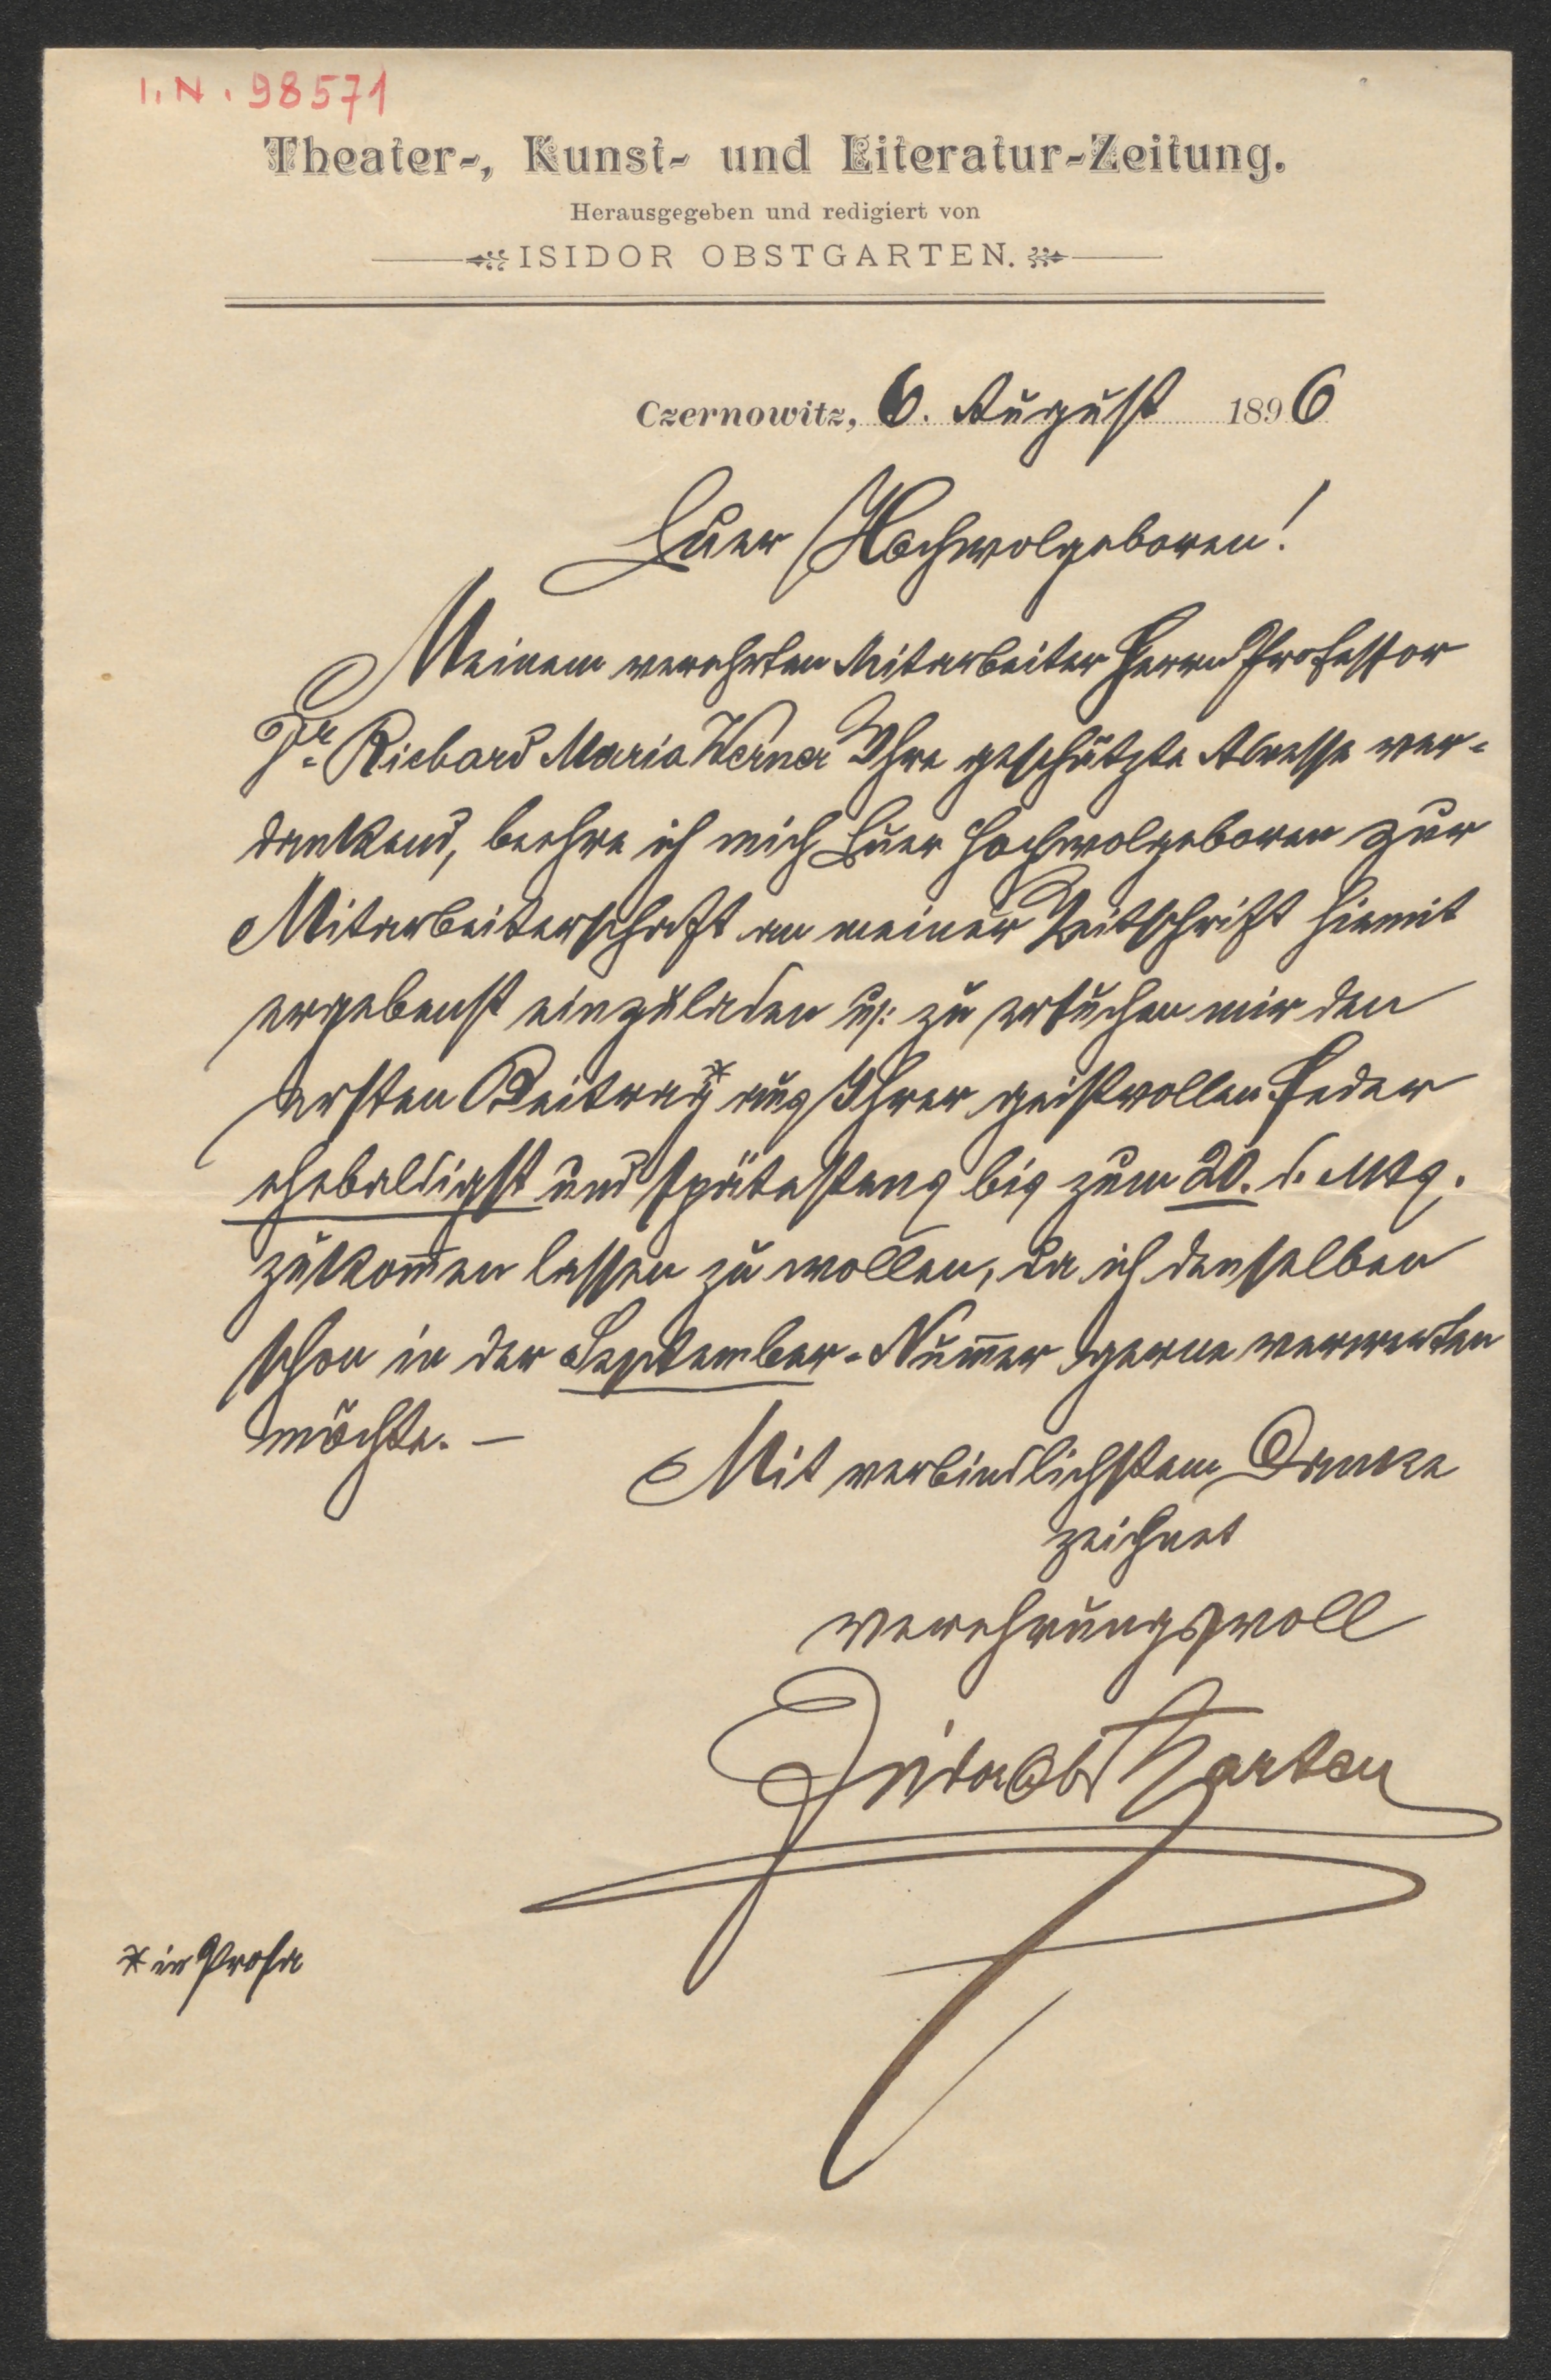 I. N. 98571
Theater-, Kunst- und Literatur-Zeitung.
Herausgegeben und redigiert von
ISIDOR OBSTGARTEN.
Czernowitz, 6. August 1896
Euer Hochwolgeboren!
Meinem verehrten Mitarbeiter Herrn Professor
Dr. Richard Maria Werner Ihre geschätzte Adresse ver-
dankend, beehre ich mich Euer Hochwolgeboren zur
Mitarbeiterschaft an meiner Zeitschrift hiemit
ergebenst einzuladen u. zu ersuchen mir den
ersten Beitrag* aus Ihrer geistvollen Feder
ehebaldigst und spätestens bis zum 20. d. Mts.
zukom̅en lassen zu wollen, da ich denselben
schon in der September-Num̅er gerne verwerten
möchte. –
Mit verbindlichstem Danke
zeichnet
verehrungsvoll
Isidor Obstgarten
* in Prosa